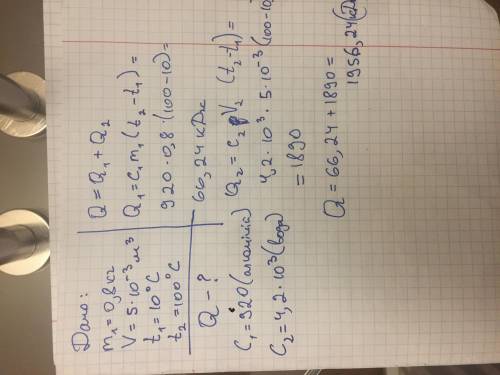 Дано:
m₁=0,8кг
V=5·10⁻³ м³
t₁=10°C
t₂=100°C
Q-?
C₁=920 (алюминія)
C₂=4,2·10³ (вода)
Q = Q₁+Q₂
Q₁=C₁m₁(t₂-t₁)=
920·0,8·(100-10)=
66,24 кДж
Q₂=C₂ρV₂ (t₂-t₁)=
4,2·10³·5·10⁻³(100-10)
=1890
Q=66,24+1890=
1956,24(кДж